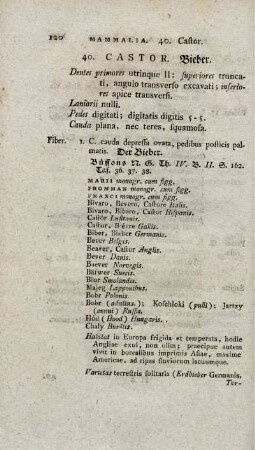 120 MAMMALIA. 40. Castor.
40. CASTOR. Bieber.
Dentes primores utrinque II: superiores trunca-
ti, angulo transverso excavati; inferio-
res apice transversi.
Laniarii nulli.
Pedes digitati; digitatis digitis 5-5.
Cauda plana, nec teres, squamosa.
Fiber. 1. C. cauda depressa ovata, pedibus posticis pal-
matis. Der Bieber.
Büffons N. G. Th. IV. B. II. S. 162.
Taf. 36. 37. 38.
MARII monogr. cum figg.
FROMMAN monogr. cum figg.
FRANCI monogr. cum figg.
Bivaro, Bevero, Castoro Italis.
Bivaro, Bibaro, Castor Hispanis.
Castor Lusitanis.
Castor, Bièvre Gallis.
Biber, Bieber Germanis.
Bever Belgis.
Beaver, Castor Anglis.
Bever Danis.
Baever Norvegis.
Bäfwer Suecis.
Biur Smolandis.
Majeg Lapponibus.
Bobr Polonis.
Bobr (adultus.); Koschloki (pulli); Jartzy
(anni) Russis.
Hód (Hood) Hungaris.
Chaly Burätis.
Habitat in Europa frigida et temperata, hodie
Angliae exul, non olim; praecipue autem
vivit in borealibus imprimis Asiae, maxime
Americae, ad ripas fluviorum lacuumque.
Varietas terrestris solitaria (Erdbieber Germanis.
Ter-